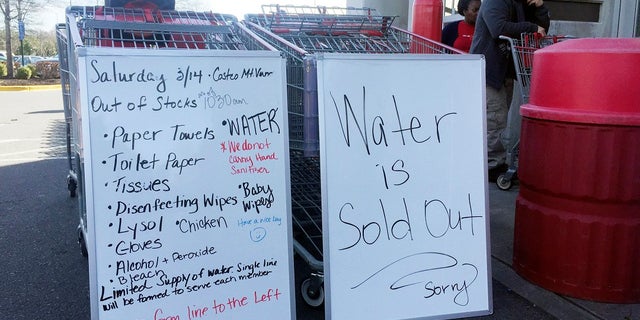 Saturday 3/14 · Costco Mt Vern
Out of Stocks as of 1030am
· Paper Towels
· Toilet Paper
· Tissues
· Disenfecting Wipes
· Lysol · Chicken
· Gloves
· Alcohol + Peroxide
· Bleach
· WATER
* We do not
carry Hand
Sanitizer
· Baby
Wipes
Have a Nice Day
Limited Supply of water. Single line
will be formed to serve each member
form line to the Left
Water
is
Sold Out
Sorry